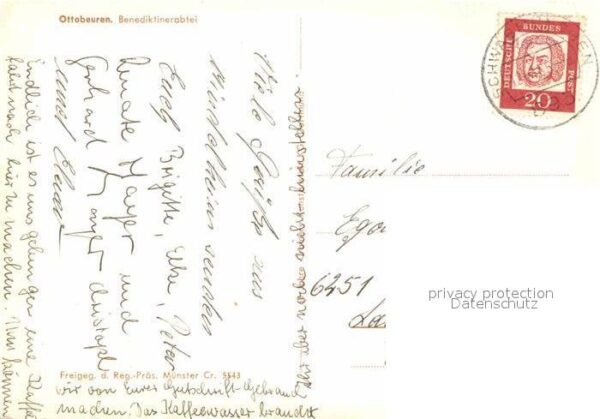 Ottobeuren. Benediktinerabtei
Viele Grüße aus
Mindelheim senden
Euch Brigitte, Elke, Peter
Renate Mayer und
Gerhard Mayer Christoph
und Elmar
Endlich ist es uns gelungen eine Kaffee
fahrt nach hier zu machen. Nun können
wir von Eurer Gutschrift Gebrauch
machen. Das Kaffeewasser braucht
Ihr aber noch nicht hinzustellen.
Freigeg. d. Reg.-Präs. Münster Cr. 5543
DEUTSCHE BUNDESPOST
20
SCHWA
EN
Familie
Ego
6251
La
privacy protection
Datenschutz